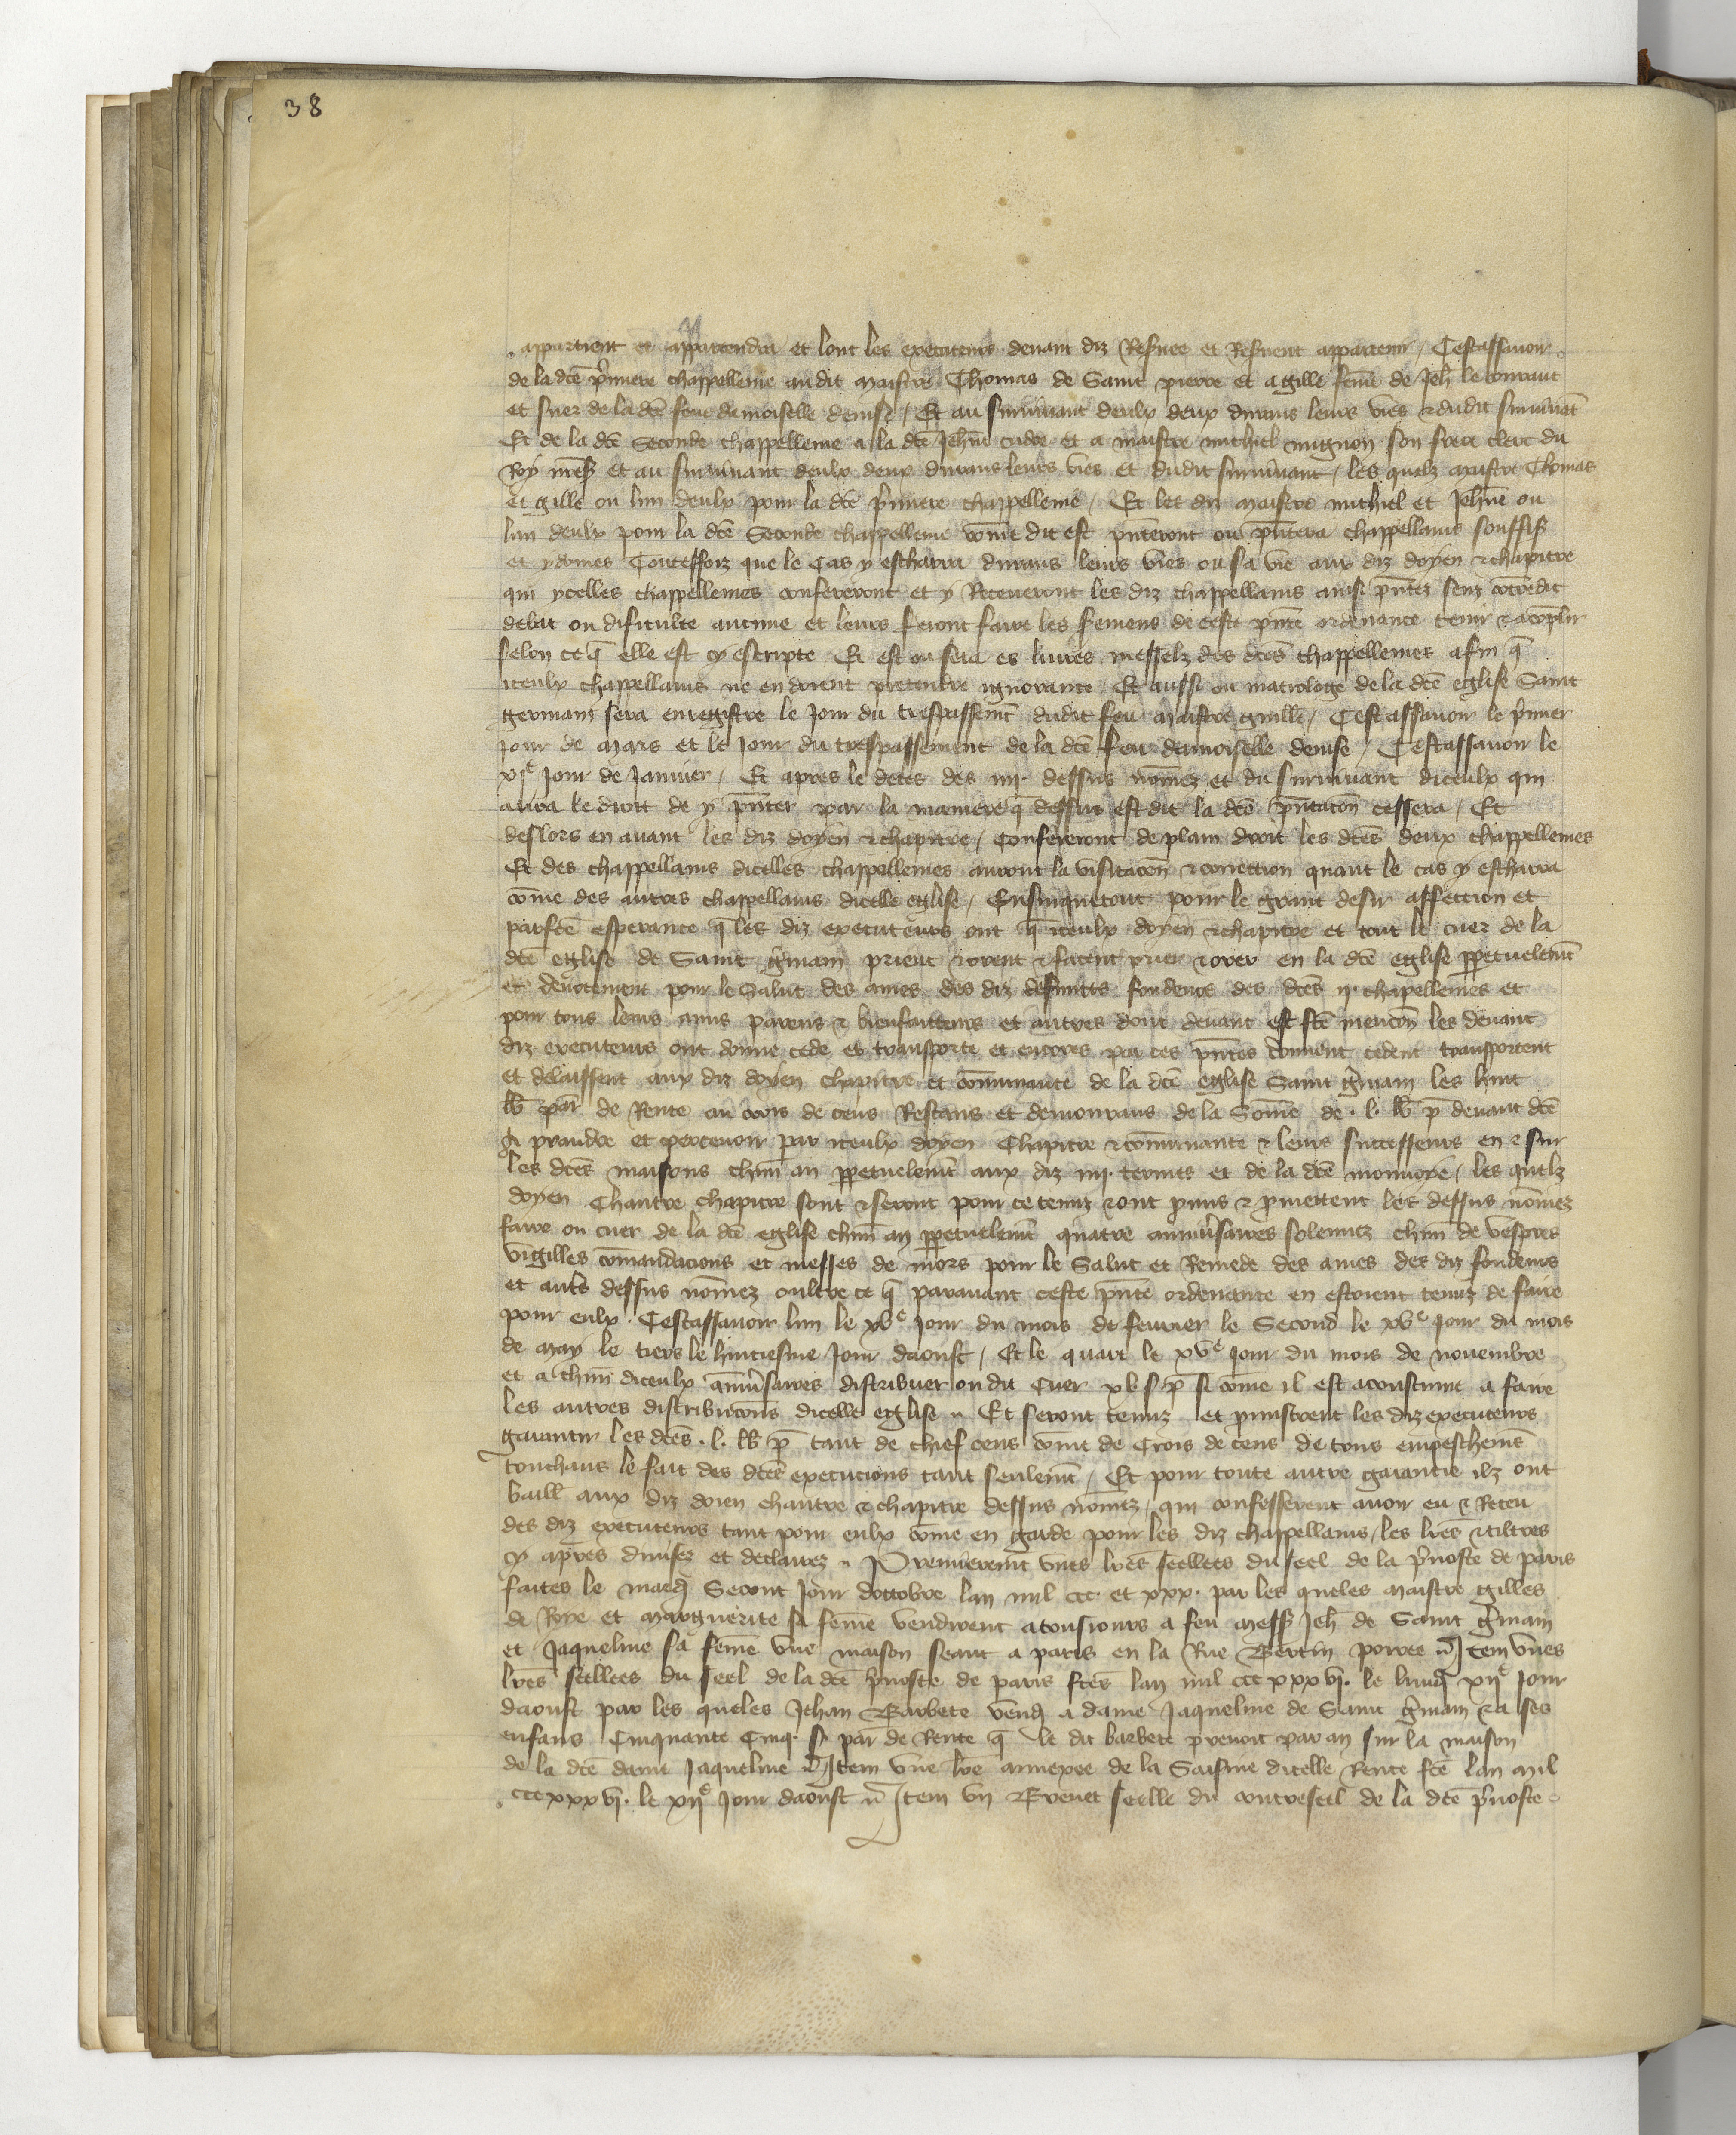 38
appartient et appartendra et lont les executeurs devant diz Resvee et Resvent appartenir / Cestassavoir
de la dcē p̄miere chappellenie audit maistre Thomas de Saint pierre et a gille fem̄e de Jeh̄ le convant
et suer de la dcē feue damoiselle denise / Et au survivant deulx deux durans leurs vies & dudit survivāt
Et de la dcē Seconde chappellenie a la dcē Jehn̄e cudoe et a maistre michiel mignon son frere clerc du
Roy nr̄e s̄ et au survivant deulx deux durans leurs vies et dudit survivant / les quelz maistre Thomas
et gille ou lun deulx pour la dcē p̄miere chappellenie / Et les diz maistre michiel et Jehn̄e ou
lun deulx pour la dcē Seconde chappellenie com̄e dit est pn̄teront ou pn̄tera chappellains souffis̄
et ydoines Touteffoiz que le Cas y escharra durans leurs vies ou sa vie aux diz doyen & chapitre
qui ycelles chappellenies confereront et y Receveront les diz chappellains ainsi pn̄tez senz cōtredit
debat ou dificulte aucune et leurs feront faire les seremens de ceste pn̄te ordenance tenir & acōplir
selon ce q̄ elle est cy escripte Et est ou sera es livres messelz des dcēs chappellenies afin q̄
iceulx chappellains ne en doient pretendre ignorance / Et aussi ou matrologe de la dcē eglise Saint
germain sera enregistre le Jour du trespassem̄t dudit feu maistre guille / Cest assavoir le p̄mier
Jour de mars et le Jour du trespassement de la dcē feue damoiselle denise / Cestassavoir le
xiͤ Jour de Janvier / Et apres le deces des iiij. dessus nōmez et du survivant diceulx qui
aura le droit de y pn̄ter par la maniere q̄ dessus est dit la dcē pn̄tacōn cessera / Et
deslors en avant les diz doyen & chapitre / Confereront de plain droit les dcēs deux chappellenies
Et des chappellains dicelles chappellenies auront la visitacōn & correction quant le cas y escharra
cōme des autres chappellains dicelle eglise / Ensurquetout pour le grant desir affection et
parfcē esperance q̄ les diz executeurs ont q̄ iceulx doyen & chapitre et tout le cuer de la
dcē eglise de Saint ḡmain prient & orent & facent prier & orer en la dcē eglise p̄petuelem̄t
et devotement pour le Salut des ames des diz deffuncts fondeurs des dcēs ij. chapellenies et
pour tous leurs amis parens & bienfaitteurs et autres dont devant est fcē mencōn les devant
diz executeurs ont donne cede et transporte et encores par ces pn̄tes donnent cedent transportent
et delaissent aux diz doyen chapitre et cōmunaute de la dcē eglise Saint ḡmain les huit
lb̄ par̄ de Rente ou crois de cens Restans et demourans de la Sōme de . l. lb̄ p̄ devant dcē
A prandre et percevoir par iceulx doyen Chapitre & cōmunaute & leurs successeurs en & sur
les dcēs maisons chūn an p̄petuelem̄t aux diz iiij. termes et de la dcē monnoye / les quelz
doyen Chantre chapitre sont & seront pour ce tenuz & ont p̄mis & p̄mettent les dessus nōmez
faire ou cuer de la dcē eglise chūn an p̄petuelem̄t quatre anniv̄saires solennez chūn de vespres
vigilles cōmandacions et messes de mors pour le Salut et Remede des ames des diz fondeurs
et aut̄s dessus nōmez oultre ce q̄ paravant ceste pn̄te ordenance en estoient tenuz de faire
pour eulx . Cestassavoir lun le xvͤ Jour du mois de fevrier le Second le xvͤ Jour du mois
de may le tiers le huitiesme Jour daoust / Et le quart le xvͤ Jour du mois de novembre
et a chūn diceulx anniv̄saires distribuer ou dit Cuer xv s̄ p̄ si cōme il est acoustume a faire
les autres distribucōns dicelle eglise // Et seront tenuz et p̄mistrent les diz executeurs
garantir les dcēs . l. lb̄ p̄ tant de chief cens cōme de Crois de cens de tous empeschem̄s
Touchans le fait des dcēs execucions tant seulem̄t / Et pour toute autre garantie ilz ont
baille aux diz doien chantre & chapitre dessus nōmez / qui confesserent avoir eu & Receu
des diz executeurs tant pour eulx cōme en garde pour les diz chappellains / les lrēs & tiltres
cy apres divisez et declairez // Premierem̄t unes lrēs seellees du seel de la p̄voste de paris
faites le mardj̄ Secont Jour doctobre lan mil ccc et xxx. par les queles maistre Gilles
de Roye et marguerite sa feme vendirent a tousiours a feu mess̄ Jeh̄ de Saint ḡmain
et Jaqueline sa feme une maison seant a paris en la Rue Bertin poiree // Item unes
lrēs seellees du seel de la dcē p̄voste de paris fcēs lan mil ccc xxxvi. le lundj̄ xijͤ Jour
daoust par les queles Jehan Barbete vendj̄ a dame Jaqueline de Saint ḡmain & a ses
enfans Cinquante Cinq s̄ par̄ de Rente q̄ le dit barbete prenoit par an sur la maison
de la dcē dame Jaqueline // Item une lrē annexee de la Saisine dicelle Rente fcē lan mil
ccc xxxvi. le xijͤ Jour daoust // Item un Brevet seelle du contreseel de la dcē p̄voste